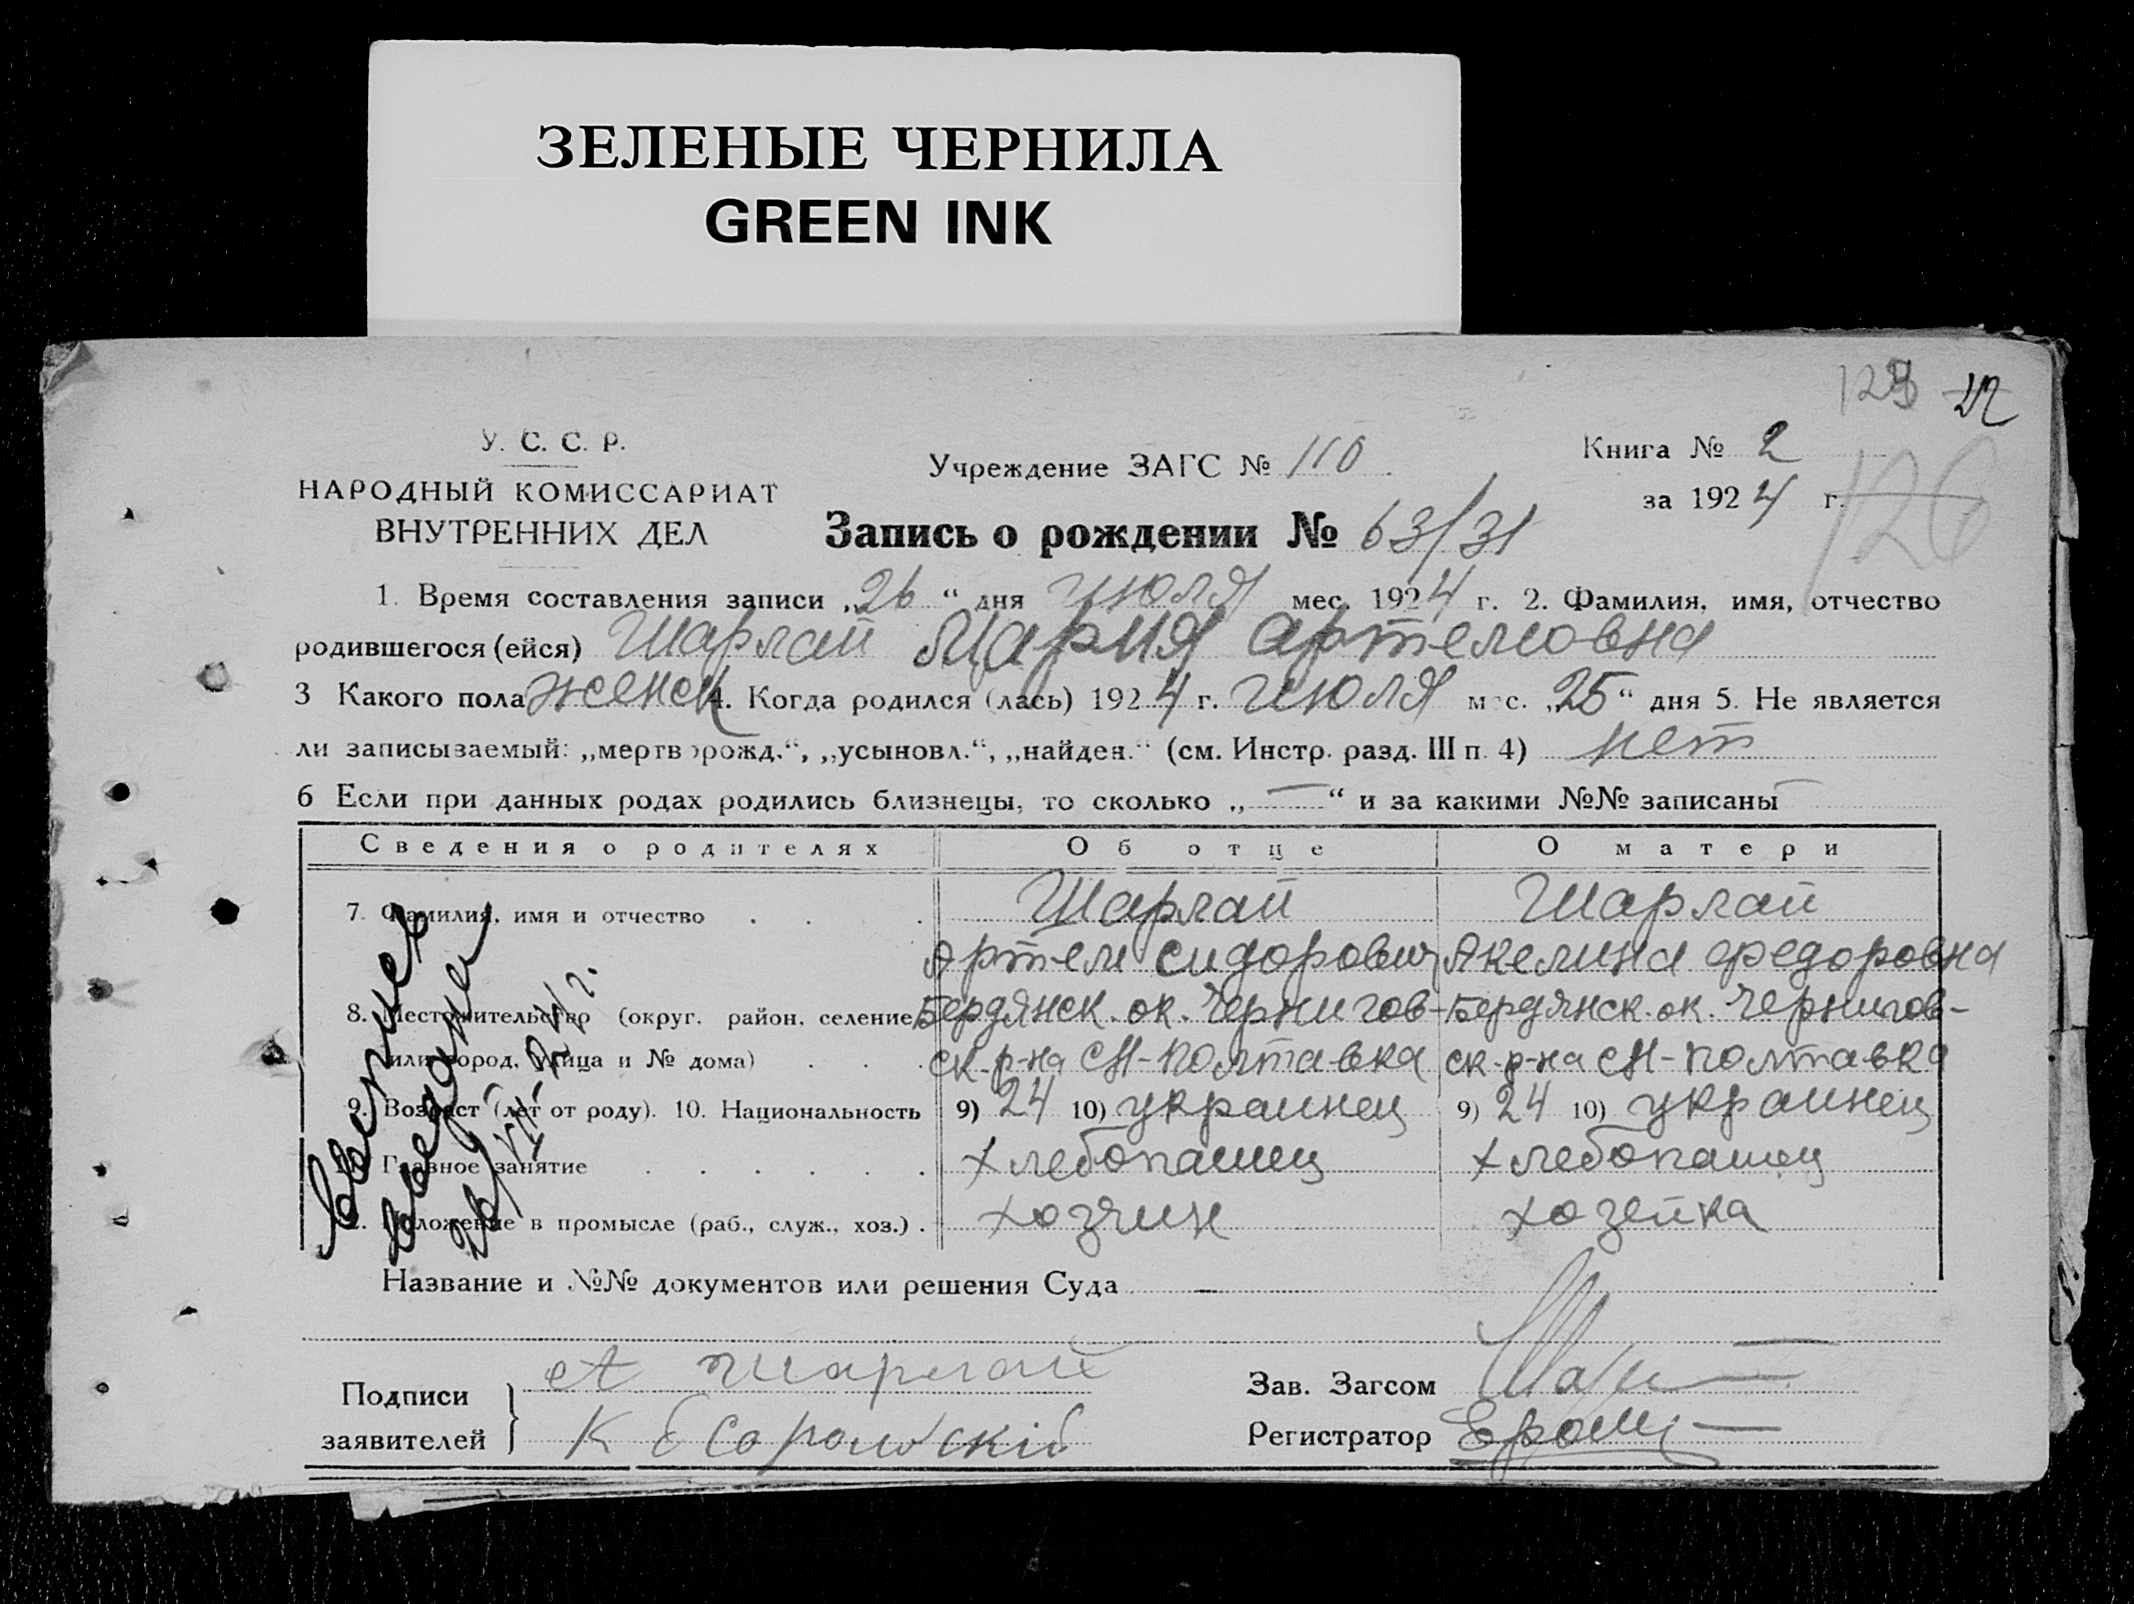 ЗЕЛЕНЫЕ ЧЕРНИЛА
GREEN INK
У. С. С. Р.
НАРОДНЫЙ КОМИССАРИАТ
ВНУТРЕННИХ ДЕЛ
Учреждение ЗАГС № 110
Книга № 2
за 1924 г.
126
Запись о рождении № 63/31
1. Время составления записи „26“ дня июля мес. 1924 г. 2. Фамилия, имя, отчество
родившегося (ейся) Шарлай Мария Артемовна
3 Какого пола женск 4. Когда родился (лась) 1924 г. июля мес. „25“ дня 5. Не является
ли записываемый: „мертворожд.“, „усыновл.“, „найден.“ (см. Инстр. разд. III п. 4) нет
6 Если при данных родах родились близнецы, то сколько „—“ и за какими №№ записаны —
Сведения о родителях Об отце О матери
7. Фамилия, имя и отчество . . . Шарлай Шарлай
Артем Сидорович Акелина Федоровна
8. Местожительство (округ. район. селение Бердянск. ок. Чернигов- Бердянск. ок. Чернигов-
или город, улица и № дома) . . . ск. р-на СН-Полтавка ск. р-на СН-Полтавка
9. Возраст (лет от роду). 10. Национальность 9) 24 10) украинец 9) 24 10) украинец
Главное занятие . . . . . . хлебопашец хлебопашец
Положение в промысле (раб., служ., хоз.) . хозяин хозейка
Название и №№ документов или решения Суда —
Подписи
заявителей
А Шарлай
Зав. Загсом
Регистратор